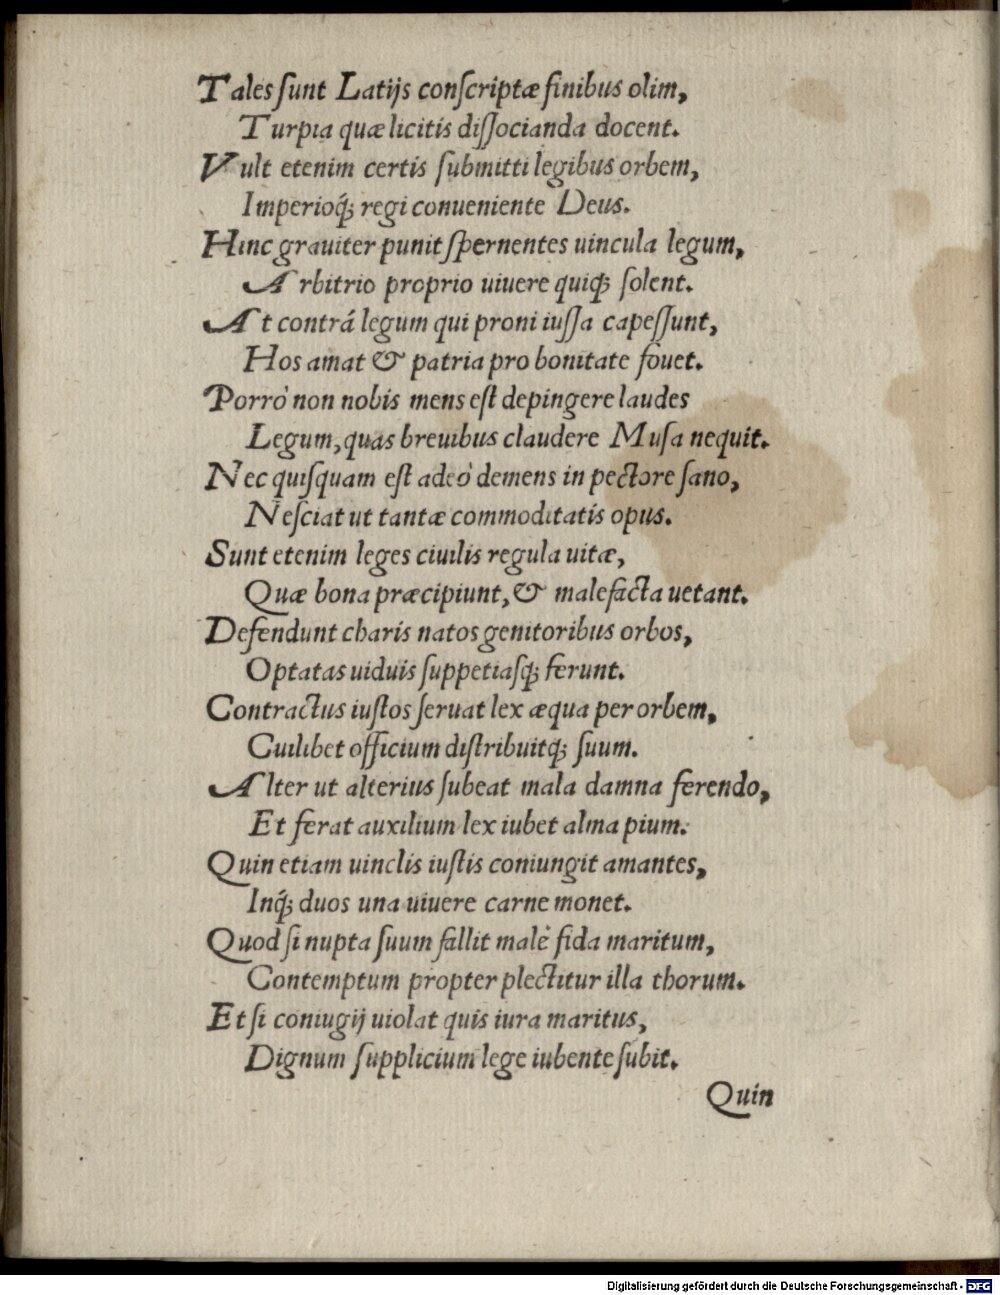 Tales ſunt Latijs conſcriptæ finibus olim,
Turpia quæ licitis diſſocianda docent.
Vult etenim certis ſubmitti legibus orbem,
Imperioq́; regi conueniente Deus.
Hinc grauiter punit ſpernentes uincula legum,
Arbitrio proprio uiuere quiq; ſolent.
At contrá legum qui proni iuſſa capeſſunt,
Hos amat & patria pro bonitate fòuet.
Porrò non nobis mens eſt depingere laudes
Legum, quas breuibus claudere Muſa nequit.
Nec quiſquam eſt adeò demens in pectore ſano,
Neſciat ut tantæ commoditatis opus.
Sunt etenim leges ciuilis regula uitæ,
Quæ bona præcipiunt, & malefacta uetant.
Defendunt charis natos genitoribus orbos,
Optatas uiduis ſuppetiaſq; ferunt.
Contractus iuſtos ſeruat lex æqua per orbem,
Cuilibet officium diſtribuitq́; ſuum.
Alter ut alterius ſubeat mala damna ferendo,
Et ferat auxilium lex iubet alma pium.
Quin etiam uinclis iuſtis coniungit amantes,
Inq́; duos una uiuere carne monet.
Quod ſi nupta ſuum fallit malè fida maritum,
Contemptum propter plectitur illa thorum.
Et ſi coniugij uiolat quis iura maritus,
Dignum ſupplicium lege iubente ſubit.
Quin
Digitalisierung gefördert durch die Deutsche Forschungsgemeinschaft - DFG